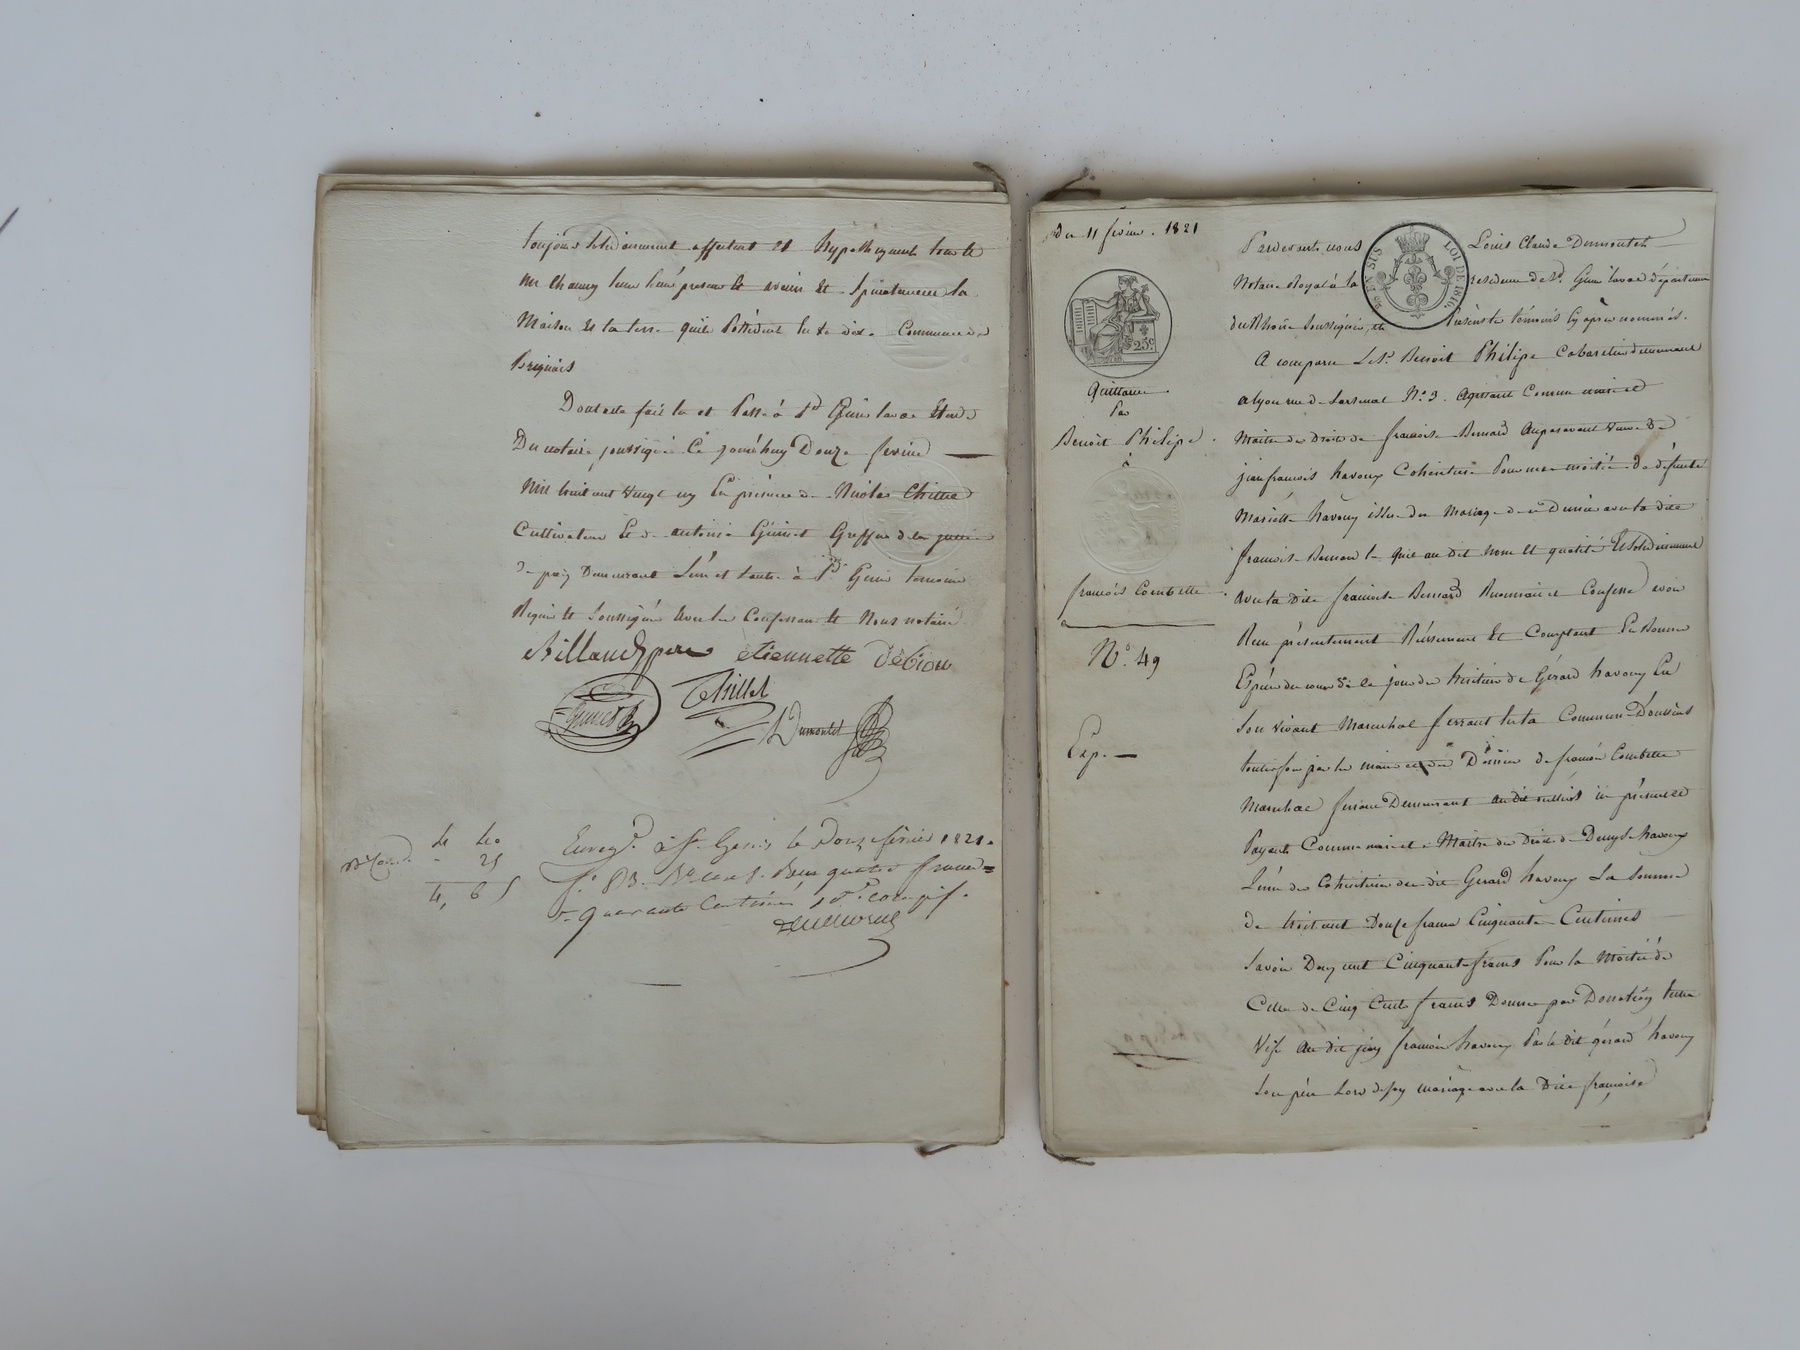 toujours solidairement affectent et hypothequent tous et
un chacuns leurs biens presents et avenir et spécialement la
Maison et la terre quils Possèdent sur la dite Commune de
Brignais
Dont acte fait lu et Passé à St Genis laval Etude
Du notaire soussigné Ce jourdhuy Douze fevrier
Mil huit cent vingt un En présence de Nicolas Chillet
Cultivateur Et de antoine Guinet Greffier de la justice
de paix Demeurant L'un et l'autre à St Genis temoins
Requis et Soussignés avec les Confessants et Nous notaire
Billaud père etiennette débion
Guinet Chillet
Dumontet
4 40
- 25
4, 65
Enregt. à St Genis le Douze février 1821.
f° 83. Reçu quatre francs
quarante Centimes, dt. compris.
du 11 fevrier. 1821
Pardevant nous Louis Claude Dumontet
Notaire Royal à la residence de St. Genis laval département
du Rhône Soussigné, et Présents témoins cy après nommés.
LOI DE 1816.
25c.
A comparu Le Sr. Benoit Philipe Cabaretier demeurant
Quittance
Par
a lyon rue de Larsenal N° 3. agissant Comme mari et
Benoit Philipe
Maitre des Droits de françoise Bernard auparavant Veuve de
à
jean françois havouy Cohéritiere Pour une moitié de défunte
Mariette havouy issue du Mariage de ce Dernier avec la dite
françoise Bernard le quel au dit nom et qualité Et Solidairement
françois Combette
avec la Dite françoise Bernard Reconnait et Confesse avoir
N°. 49
Reçu présentement Réellement Et Comptant En Bonnes
Espèces du cours de ce jour des héritiers de Gérard havouy En
Son vivant Marechal ferrant sur la Commune D'oullins
Exp.
toutefois par les mains et des Déniers de françois Combette
Marechal ferrant Demeurant audit oullins ici présent et
Payant Comme mari et Maitre des Droits de Denyse havouy
L'une des Cohéritiers du dit Gérard havouy La Somme
de trois cent Douze francs Cinquante Centimes
Savoir Deux cent Cinquante francs Pour la Moitié de
Celle de Cinq Cents francs Donnée par Donation Entre
Vifs au dit jean françois havouy Par le dit gérard havouy
Son père Lors de son mariage avec la Dite françoise